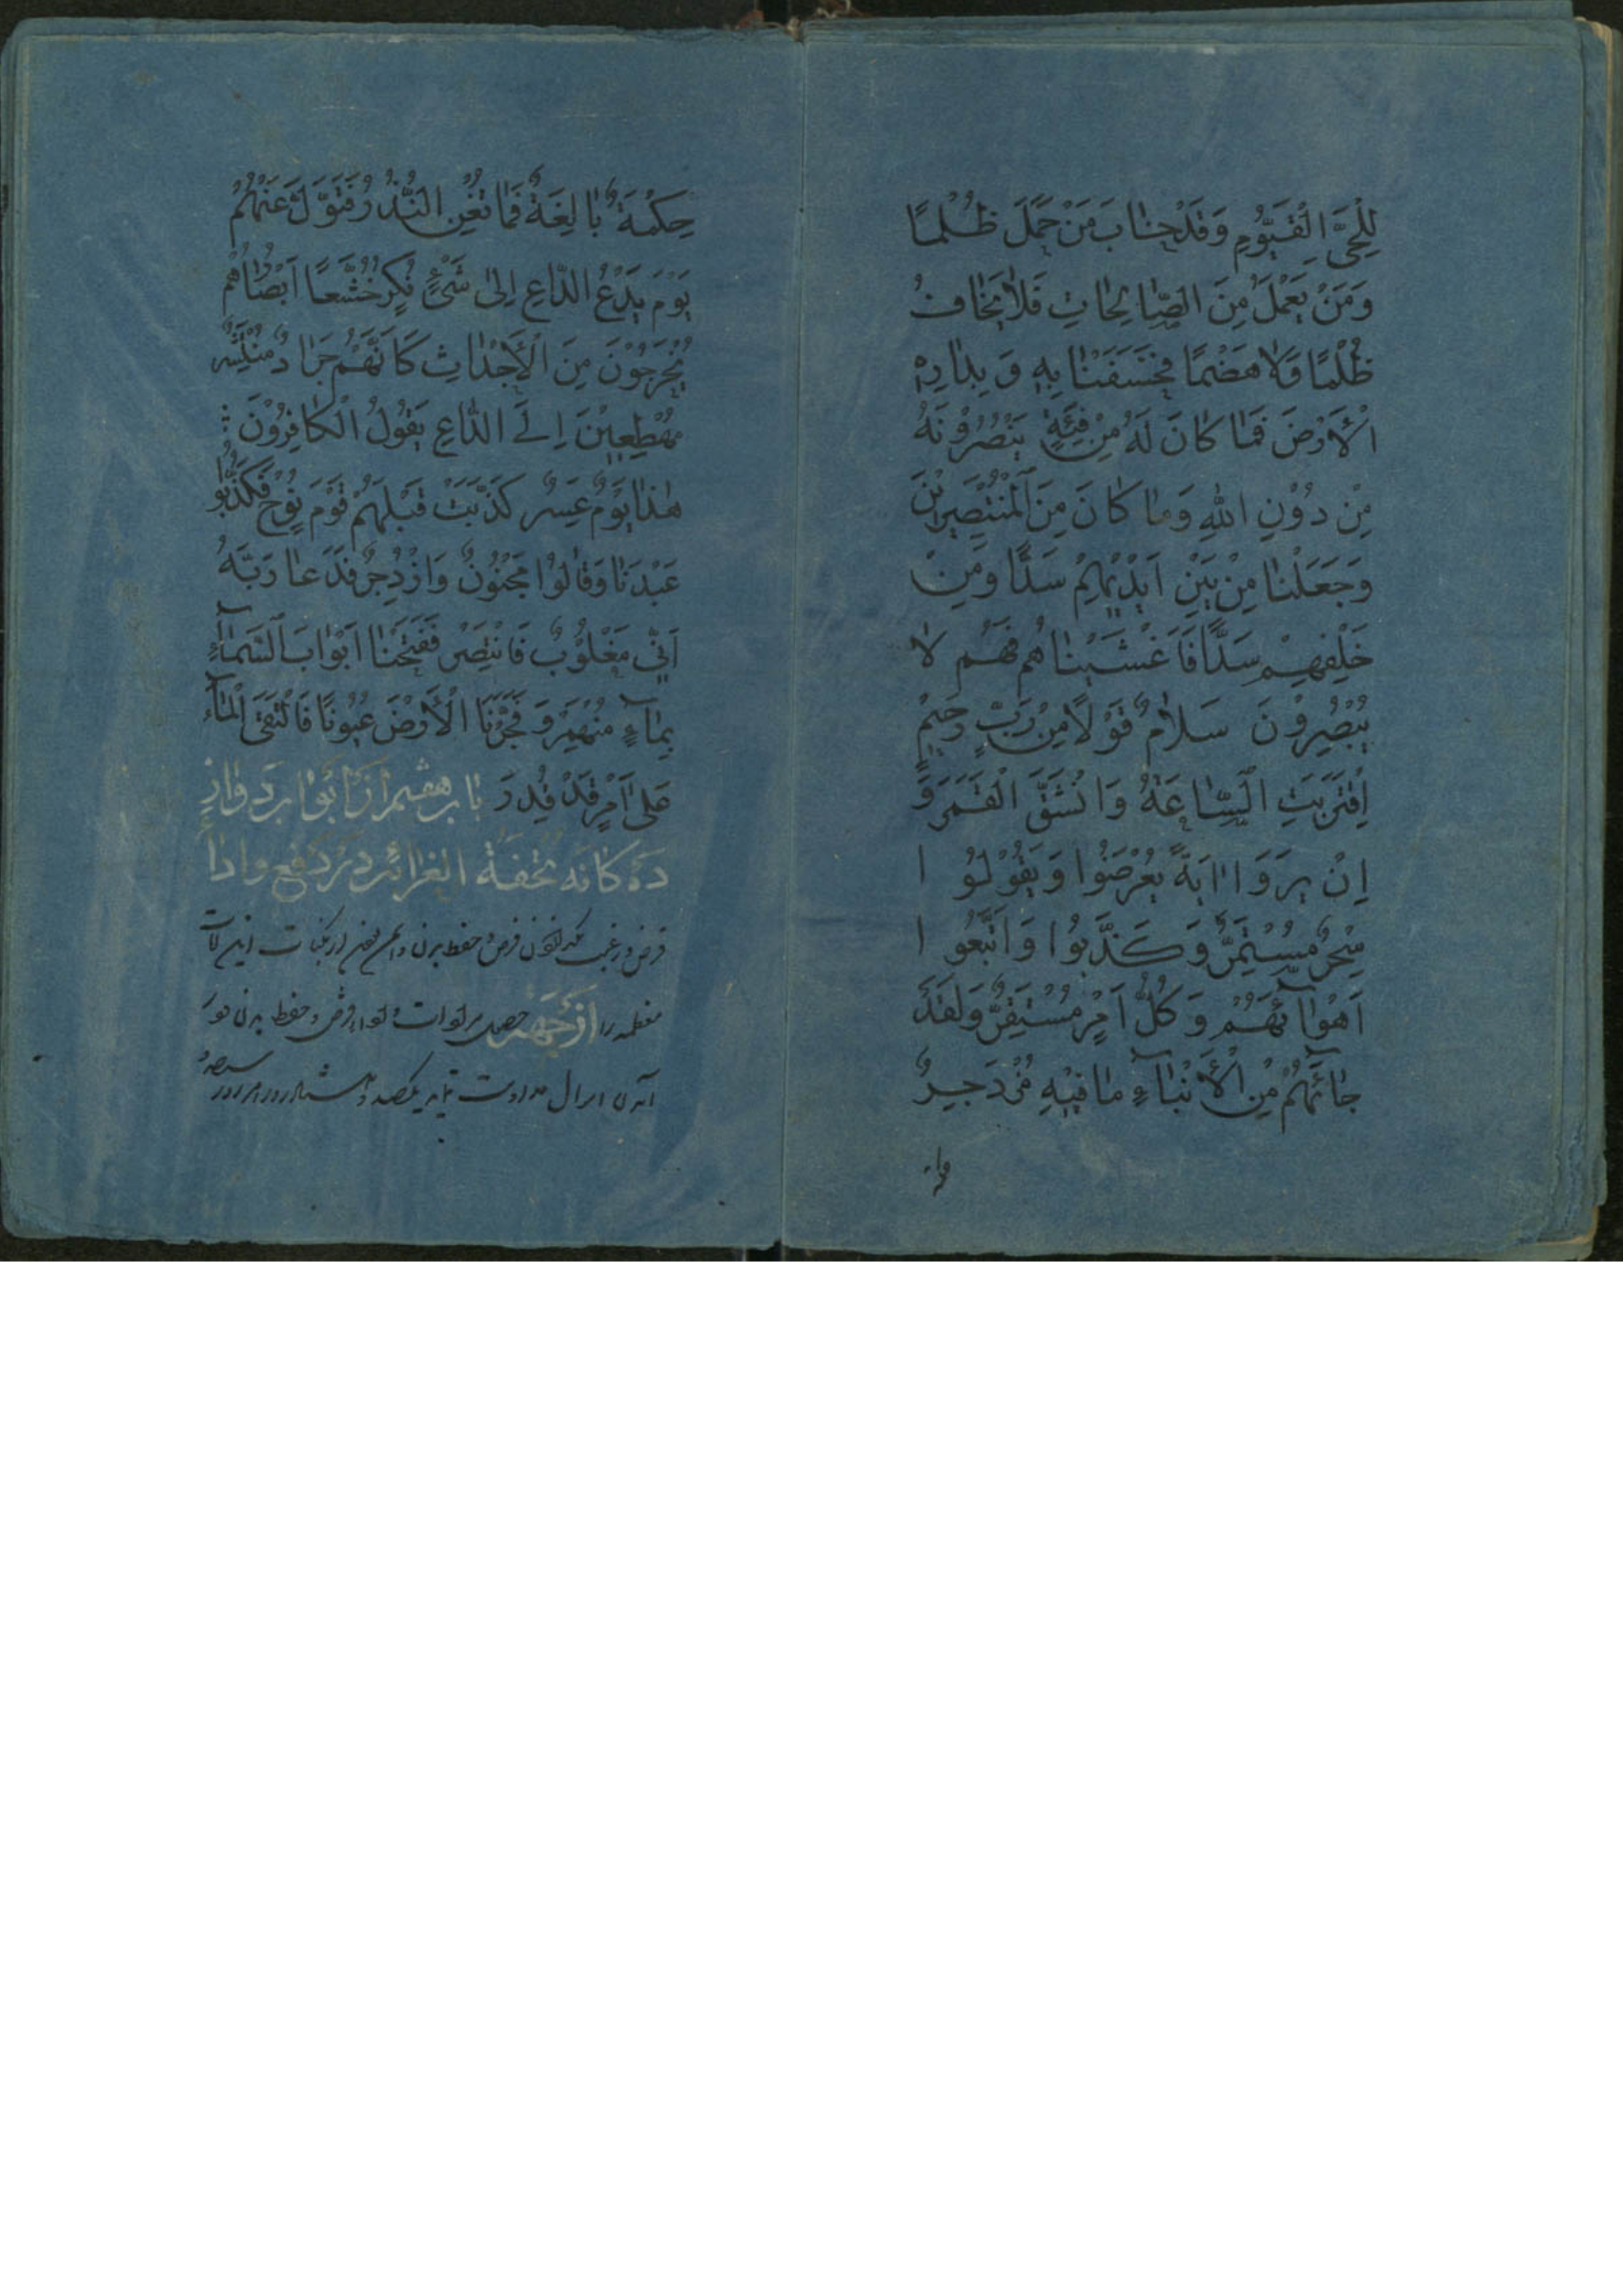 لِلْحَيِّ الْقَيُّومِ وَقَدْ خَابَ مَنْ حَمَلَ ظُلْمًا
وَمَنْ يَعْمَلْ مِنَ الصَّالِحَاتِ فَلَا يَخَافُ
ظُلْمًا وَلَا هَضْمًا فَخَسَفْنَا بِهِ وَ بِدَارِهِ
الْأَرْضَ فَمَا كَانَ لَهُ مِنْ فِئَةٍ يَنْصُرُونَهُ
مِنْ دُوْنِ اللهِ وَمَا كَانَ مِنَ الْمُنْتَصِرِيْنَ
وَجَعَلْنَا مِنْ بَيْنِ اَيْدِيْهِمْ سَدًّا وَمِنْ
خَلْفِهِمْ سَدًّا فَاَغْشَيْنَاهُمْ فَهُمْ لَا
يُبْصِرُوْنَ سَلَامٌ قَوْلًا مِنْ رَبٍّ رَحِيْمٍ
اِقْتَرَبَتِ السَّاعَةُ وَانْشَقَّ الْقَمَرُ وَ
اِنْ يَرَوْا اٰيَةً يُعْرِضُوْا وَيَقُوْلُوْا
سِحْرٌ مُسْتَمِرٌّ وَكَذَّبُوْا وَاتَّبَعُوا
اَهْوَاۤئَهُمْ وَكُلُّ اَمْرٍ مُسْتَقِرٌّ وَلَقَدْ
جَاۤئَهُمْ مِنَ الْأَنْبَاۤءِ مَا فِيْهِ مُزْدَجَرٌ
حِكْمَةٌ بَالِغَةٌ فَمَا تُغْنِ النُّذُرُ فَتَوَلَّ عَنْهُمْ
يَوْمَ يَدْعُ الدَّاعِ اِلَى شَيْءٍ نُكُرٍ خُشَّعًا اَبْصَارُهُمْ
يَخْرُجُوْنَ مِنَ الْأَجْدَاثِ كَاَنَّهُمْ جَرَادٌ مُنْتَشِرٌ
مُهْطِعِيْنَ اِلَى الدَّاعِ يَقُوْلُ الْكَافِرُوْنَ
هٰذَا يَوْمٌ عَسِرٌ كَذَّبَتْ قَبْلَهُمْ قَوْمُ نُوْحٍ فَكَذَّبُوْا
عَبْدَنَا وَقَالُوْا مَجْنُوْنٌ وَازْدُجِرَ فَدَعَا رَبَّهُ
اَنِّي مَغْلُوْبٌ فَانْتَصِرْ فَفَتَحْنَا اَبْوَابَ السَّمَاۤءِ
بِمَاۤءٍ مُنْهَمِرٍ وَفَجَّرْنَا الْأَرْضَ عُيُوْنًا فَالْتَقَى الْمَاۤءُ
عَلَى اَمْرٍ قَدْ قُدِرَ باب هفتم از ابواب دوازد
ده كانه تحفة الغرائب در دفع و ادا
قرض و رغبت
معظمه را از جهة